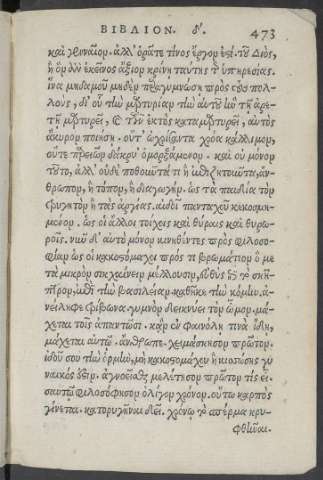 ΒΙΒΛΙΟΝ. δ'. 473
καὶ γυναῖον. ἀλλ' ὁρᾶτε τίνος ἔργον ἐστί. τοῦ Διὸς,
ἢ ὃν ἂν ἐκεῖνος ἄξιον κρίνῃ ταύτης τῆς ὑπηρεσίας.
ἵνα μηδαμοῦ μηδὲν παραγυμνώσῃ πρὸς τοὺς πολ-
λοὺς, δι' οὗ τὴν μαρτυρίαν τὴν αὐτοῦ ἣν τῇ ἀρε-
τῇ μαρτυρεῖ, καὶ τῶν ἐκτὸς καταμαρτυρεῖ, αὐτὸς
ἄκυρον ποιήσῃ. οὔτ' ὠχρήσαντα χρόα κάλλιμον,
οὔτε παρειῶν δάκρυ' ὀμορξάμενον. καὶ οὐ μόνον
τοῦτο, ἀλλ' οὐδὲ ποθοῦντά τι ἢ ἐπιζητοῦντα, ἄν-
θρωπον, ἢ τόπον, ἢ διαγωγήν. ὡς τὰ παιδία τὸν
τρυγητὸν ἢ τὰς ἀργίας. αἰδοῖ πανταχοῦ κεκοσμη-
μένον. ὡς οἱ ἄλλοι τοίχοις καὶ θύραις καὶ θυρω-
ροῖς. νῦν δ' αὐτὸ μόνον κινηθέντες πρὸς φιλοσο-
φίαν ὡς οἱ κακοστόμαχοι πρός τι βρωμάτιον ὃ με
τὰ μικρὸν σικχαίνειν μέλλουσιν, εὐθὺς ἐπὶ τὸ σκῆ-
πτρον, ἐπὶ τὴν βασιλείαν καθῆκε τὴν κόμην. ἀ-
νείληφε τρίβωνα. γυμνὸν δεικνύει τὸν ὦμον. μά-
χεται τοῖς ἀπαντῶσι. κἂν ἐν φαινόλῃ τινὰ ἴδῃ,
μάχεται αὐτῷ. ἄνθρωπε. χειμάσκησον πρῶτον.
ἰδοῦ σου τὴν ὁρμὴν, μὴ κακοστομάχου ἢ κισσώσης γυ
ναικός ἐστιν. ἀγνοεῖσθαι μελέτησον πρῶτον τίς εἶ.
σαυτῷ φιλοσόφησον ὀλίγον χρόνον. οὕτω καρπὸς
γίνεται. κατορυγῆναι δεῖ. χρόνῳ τὸ σπέρμα κρυ-
φθῆναι.